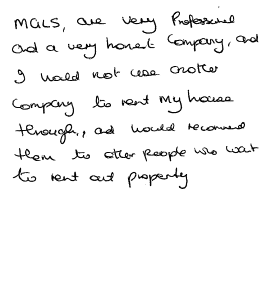 MGLS, are very Professional
and a very honest Company, and
I would not use another
Company to rent my house
through, and would recommend
them to other people who want
to rent out property